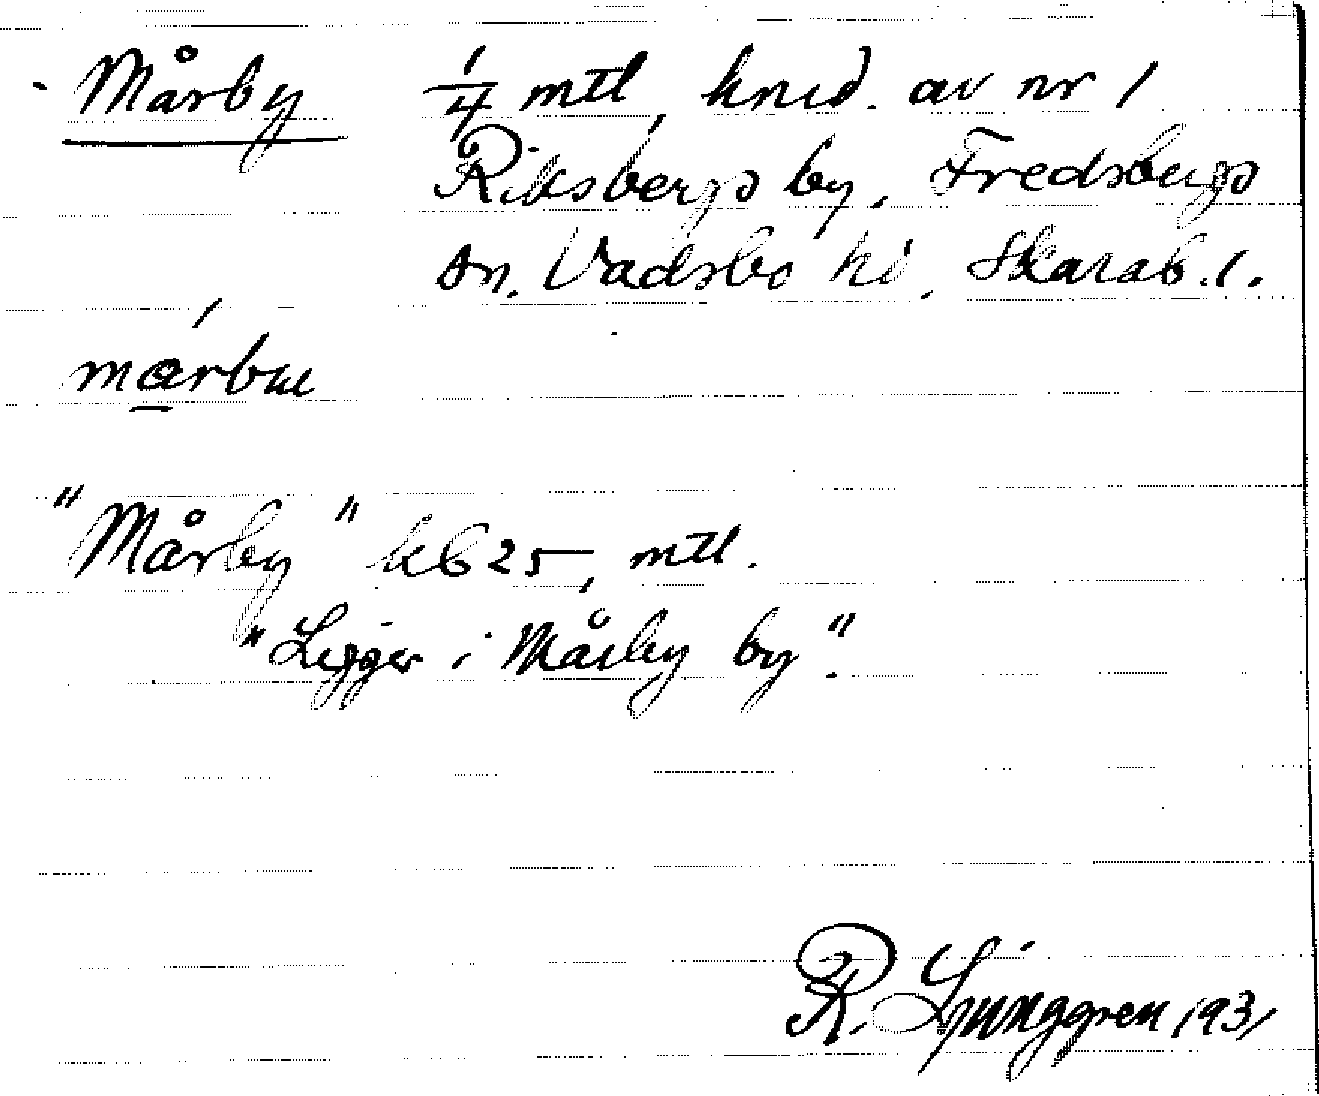 Mårby 1/4 mtl, kned. av nr 1
Riksbergs by, Fredsbergs
sn. Vadsbo hd, Skarab. l.
"Mårby" kb 25, mtl.
"Ligger i Mårby by".
R. Ljunggren 1931